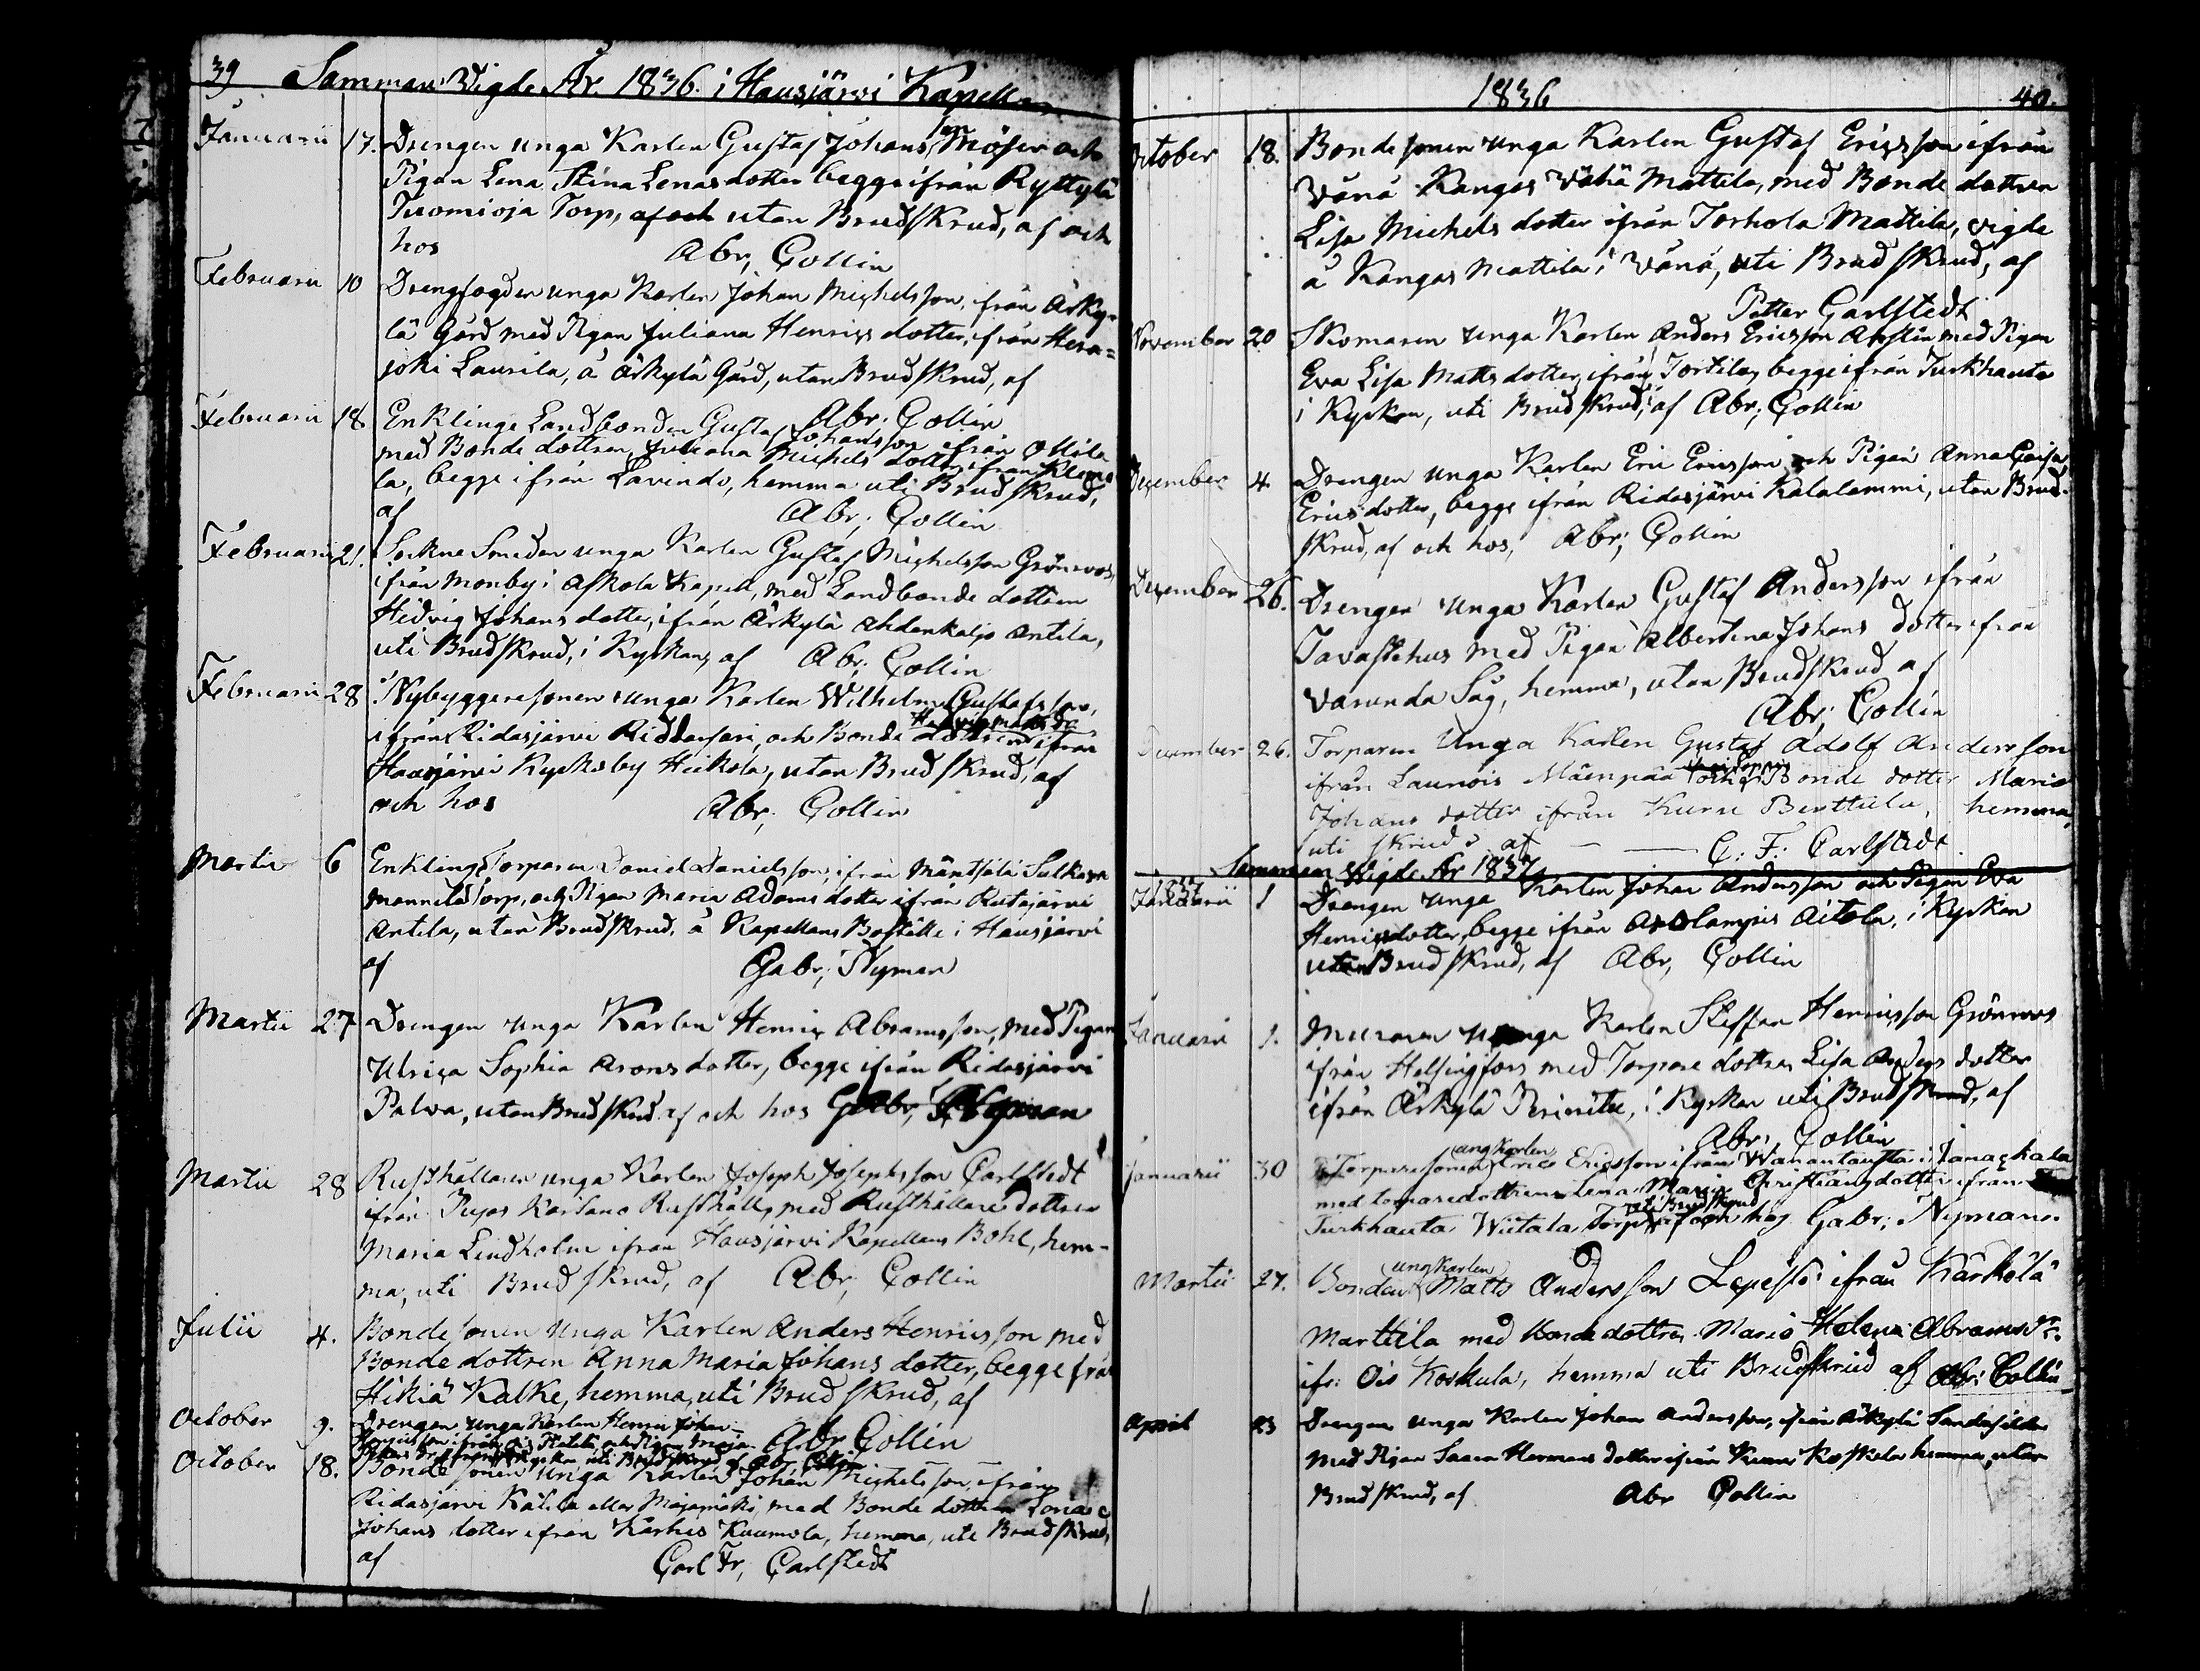 39 Samman Vigde År 1836. i Hausjärvi Kapell
Januarii 17. Drengen unga Karlen Gustaf Johansson Möser och
Pigan Lena Stina Lenasdotter begge ifrån Ryttylä
Tuomioja Torp, af och utan Brudskrud, af och
hos Abr, Collin
Februarii 10 Drengfogden unga Karlen Johan Michelsson, ifrån Ärky-
lä Gård med Pigan Juliana Henrics dotter, ifrån Hera=
joki Laurila, å Ärkylä Gård, utan Brudskrud, af
Abr; Collin
Februarii 18 Enklinge Landbonden Gustaf Johansson ifrån
med Bonde dottren Juliana Michels dotter ifrån
la, begge ifrån Lavindo, hemma uti Brudskrud,
af Abr; Collin
Februarii 21. Sockne Smeden unga Karlen Gustaf Michelsson Grönroos,
ifrån Monby i Askola Kapell, med Landbonde dottren
Hedvig Johans dotter, ifrån Ärkylä Ahdenkaljo Antila,
uti Brudskrud, i Kyrkan, af Abr; Collin
Februarii 28 Nybyggeresonen unga Karlen Wilhelm Gustafsson,
Hedvig Matts Dr
ifrån Ridasjärvi Riddarsari, och Bonde dottren ifrån
Hausjärvi Kyrkoby Heikola, utan Brudskrud, af
och hos Abr; Collin
Martii 6 Enkling Torparen Daniel Danielsson, ifrån Mäntsälä Sulkava
Mannila Torp, och Pigan Maria Adams dotter ifrån Rutajärvi
Antila, utan Brudskrud, å Kapellans Boställe i Hausjärvi
af Gabr; Nyman
Martii 27 Drengen unga Karlen Henric Abramsson, med Pigan
Ulrica Sophia Arons dotter, begge ifrån Ridasjärvi
Palva, utan Brudskrud af och hos Gabr, Nyman
Martii 28 Rusthållaren unga Karlen Joseph Josephsson Carlstedt
ifrån Karsano Rusthåll, med Rusthållare dottren
Maria Lindholm ifrån Hausjärvi Kapellans Bohl, hem-
ma, uti Brudskrud, af Abr; Collin
Julii 4. Bondesonen unga Karlen Anders Henricsson med
Bonde dottren Anna Maria Johans dotter, begge från
Hikiä Kalke, hemma, uti Brudskrud, af
Abr Collin
October 9. Drengen unga Karlen Henric Johan
Henricsson ifrån Ois och Pigan Maja
i Kyrkan uti Brudskrud af Abr Collin
October 18. Bonde sonen unga Karlen Johan Michelsson, ifrån
Ridasjärvi Kälilä eller Mäjamäki, med Bonde dottren
Johans dotter ifrån Karhis Kuumola, hemma, uti Brudskrud,
af Carl Fr, Carlstedt
1836 40.
October 18. Bonde sonen unga Karlen Gustaf Ericsson ifrån
Vånå Kangas Vähä Mattila, med Bonde dottren
Lisa Michels dotter ifrån Torhola Mattila, vigde
å Kangas Mattila i Vånå, uti Brudskrud, af
Petter Carlstedt
November 20 Skomaren unga Karlen Anders Ericsson med Pigan
Eva Lisa Matts dotter, ifrån Tortila, begge ifrån Turkhauta
i Kyrkan, uti Brudskrud, af Abr; Collin
December 4. Drengen unga Karlen Eric Ericsson och Pigan Anna Caisa
Erics dotter, begge ifrån Ridasjärvi Kalalammi, utan Brud-
skrud, af och hos, Abr; Collin
December 26. Drengen unga Karlen Gustaf Andersson ifrån
Tavastehus med Pigan Albertina Johans dotter ifrån
Varunda Såg, hemma, utan Brudskrud af
Abr; Collin
December 26. Torparen Unga Karlen Gustaf Adolf Andersson
ifrån Launois Mäenpää och Bonde dotter Maria
Johans dotter ifrån Kuru Perttula, hemma,
uti skrud af C. F. Carlstedt
Samman Vigde År 1837
Januarii 1 Drengen unga Karlen Johan Andersson och Pigan Eva
Henricsdotter, begge ifrån Aitola, i Kyrkan
utan Brudskrud, af Abr, Collin
Januarii 1. Muraren unga Karlen Staffan Henricsson Grönroos
ifrån Helsingfors med Torpare dottren Lisa Anders dotter
ifrån Ärkylä, i Kyrkan uti Brudskrud, af
Abr; Collin
Januarii 30 Torparesonen ungkarlen Eric Ericsson ifrån Wanantausta i Janackala
med Lena Maria Christiansdotter ifrån
uti Brudskrud
Turkhauta Wiitala Torp, af och hos Gabr; Nyman.
Martii 27. Bonden ungkarlen Matts Andersson Lepistö ifrån Kärkölä
Marttila med Bondedottren Maria Helena Abrams Dr.
ifr: Ois Koskula, hemma uti Brudskrud af Abr: Collin
April 23 Drengen unga Karlen Johan Andersson, ifrån Ärkylä
med Pigan Saara Hermans dotter ifrån Kuru Koskela hemma, utan
Brudskrud, af Abr Collin